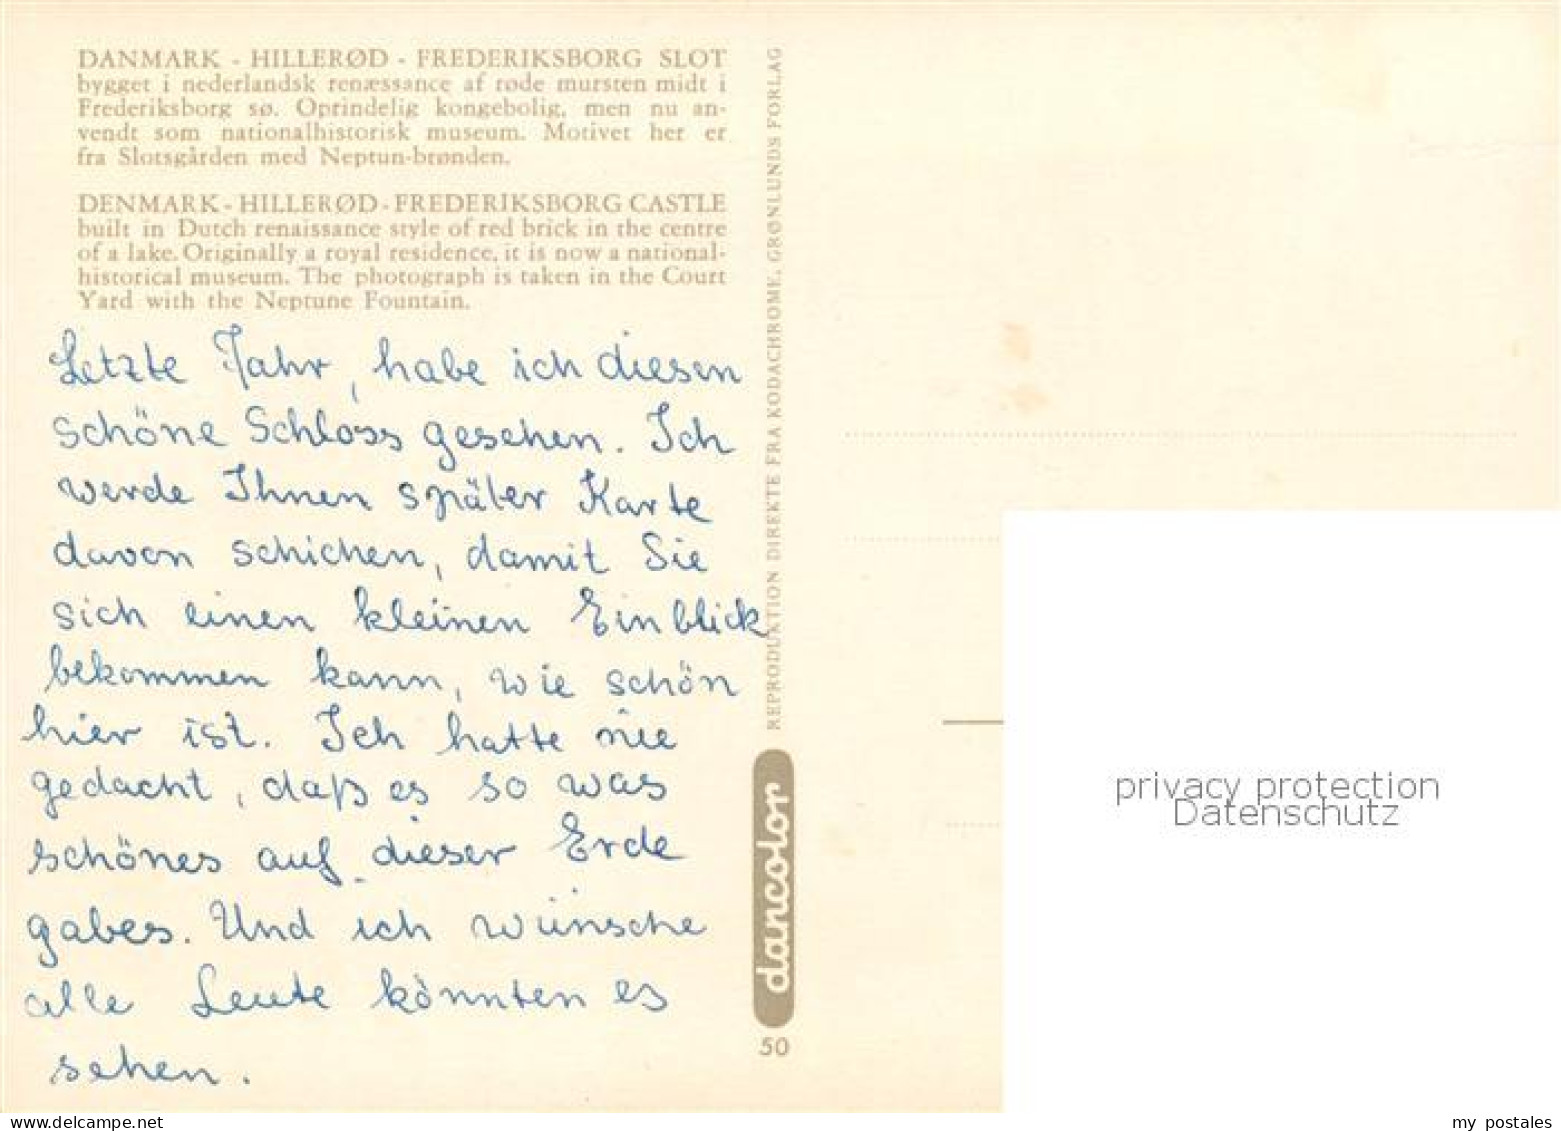 DANMARK - HILLERØD - FREDERIKSBORG SLOT
bygget i nederlandsk renæssance af røde mursten midt i
Frederiksborg sø. Oprindelig kongebolig, men nu an-
vendt som nationalhistorisk museum. Motivet her er
fra Slotsgården med Neptun-brønden.
DENMARK - HILLERØD - FREDERIKSBORG CASTLE
built in Dutch renaissance style of red brick in the centre
of a lake. Originally a royal residence, it is now a national-
historical museum. The photograph is taken in the Court
Yard with the Neptune Fountain.
Letzte Jahr, habe ich diesen
schöne Schloss gesehen. Ich
werde Ihnen später Karte
davon schichen, damit Sie
sich einen kleinen Einblick
bekommen kann, wie schön
hier ist. Ich hatte nie
gedacht, daß es so was
schönes auf dieser Erde
gabes. Und ich wünsche
alle Leute könnten es
sehen.
REPRODUKTION DIREKTE FRA KODACHROME, GRØNLUNDS FORLAG
dancolor
50
privacy protection
Datenschutz
www.delcampe.net
my_postales